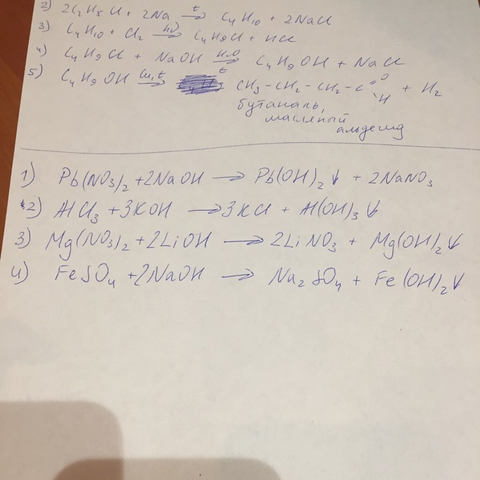 2) 2C₂H₅Cl + 2Na →t C₄H₁₀ + 2NaCl
3) C₄H₁₀ + Cl₂ →hν C₄H₉Cl + HCl
4) C₄H₉Cl + NaOH →H₂O C₄H₉OH + NaCl
5) C₄H₉OH →Cu, t CH₃-CH₂-CH₂-C=O-H + H₂
бутаналь,
масляный
альдегид
1) Pb(NO₃)₂ + 2NaOH → Pb(OH)₂↓ + 2NaNO₃
2) AlCl₃ + 3KOH → 3KCl + Al(OH)₃↓
3) Mg(NO₃)₂ + 2LiOH → 2LiNO₃ + Mg(OH)₂↓
4) FeSO₄ + 2NaOH → Na₂SO₄ + Fe(OH)₂↓